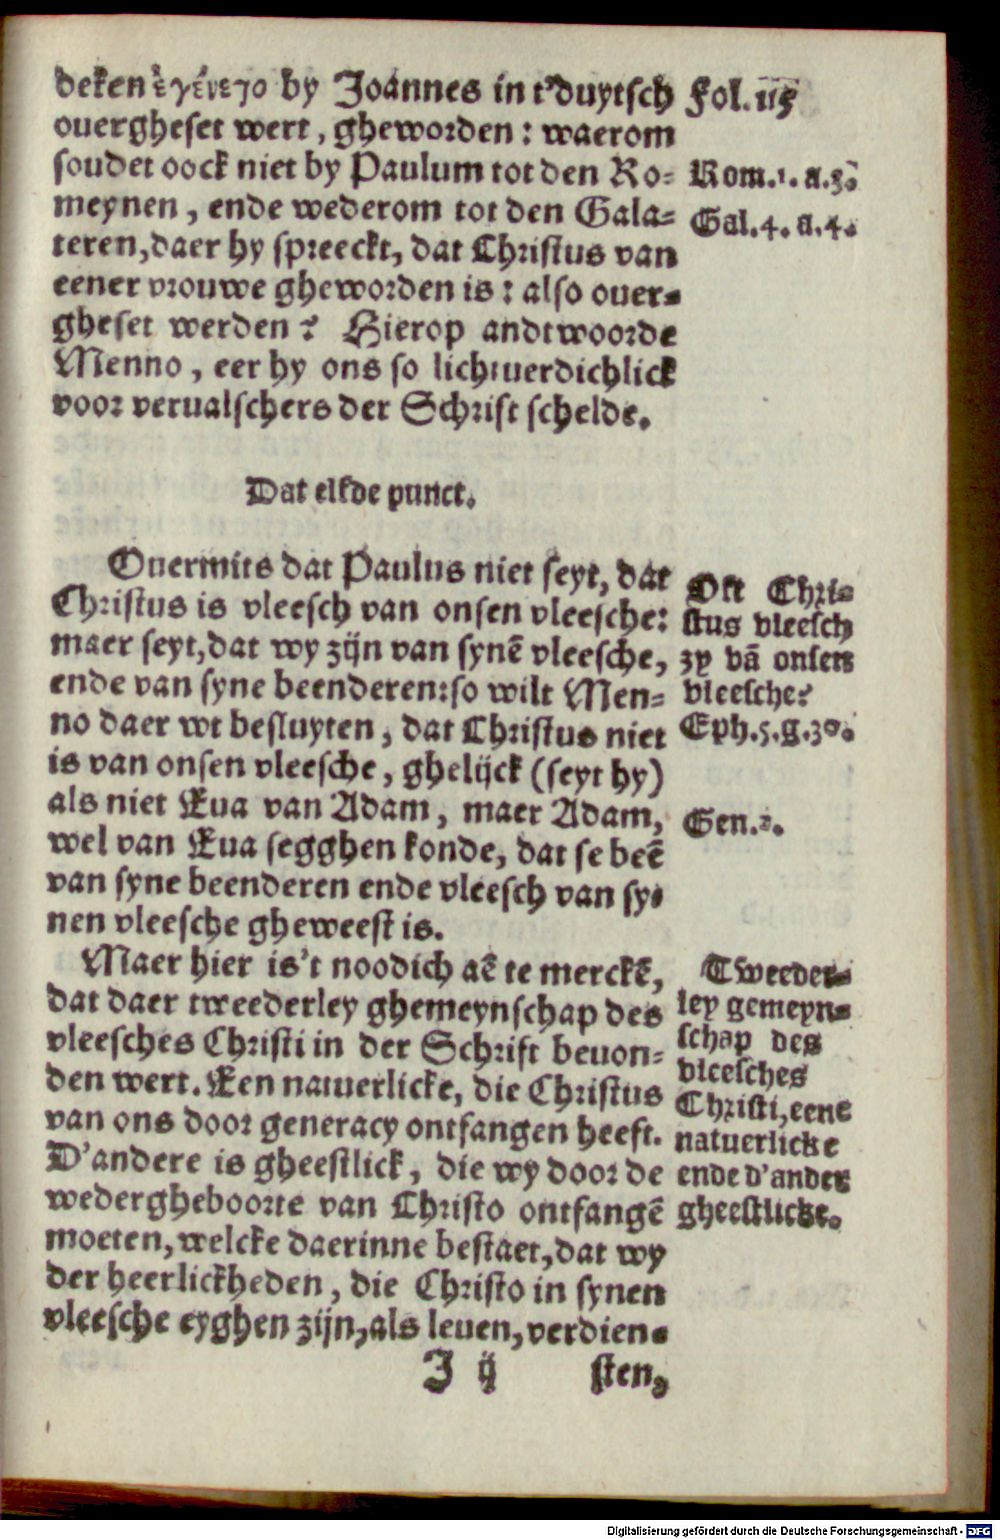 deken ἐγένετο by Joannes in t'duytsch
ouergheset wert, gheworden: waerom
soudet oock niet by Paulum tot den Ro-
meynen, ende wederom tot den Gala-
teren, daer hy spreeckt, dat Christus van
eener vrouwe gheworden is: also ouer-
gheset werden? Hierop andtwoorde
Menno, eer hy ons so lichtuerdichlick
voor vervalschers der Schrift schelde.
Fol.
Rom.1. a.3.
Gal.4. a.4.
Dat elfde punct.
Ouermits dat Paulus niet seyt, dat
Christus is vleesch van onsen vleesche:
maer seyt, dat wy zijn van synē vleesche,
ende van syne beenderen: so wilt Men-
no daer wt besluyten, dat Christus niet
is van onsen vleesche, ghelijck (seyt hy)
als niet Eua van Adam, maer Adam,
wel van Eua segghen konde, dat se beē
van syne beenderen ende vleesch van sy-
nen vleesche gheweest is.
Oft Chri-
stus vleesch
zy vā onsen
vleesche?
Eph.5.g.30.
Gen.2.
Maer hier is't noodich aē te merckē,
dat daer tweederley ghemeynschap des
vleesches Christi in der Schrift beuon-
den wert. Een natuerlicke, die Christus
van ons door generacy ontfangen heeft.
D'andere is gheestlick, die wy door de
wedergheboorte van Christo ontfangē
moeten, welcke daerinne bestaet, dat wy
der heerlickheden, die Christo in synen
vleesche eyghen zijn, als leuen, verdien-
Tweeder-
ley gemeyn-
schap des
vleesches
Christi, eene
natuerlicke
ende d'ander
gheestlicke.
J ij sten,
Digitalisierung gefördert durch die Deutsche Forschungsgemeinschaft - DFG